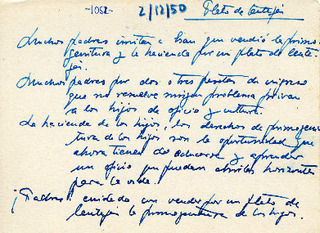 -1052-
2/12/50
Plato de lentejas
Muchos padres imitan a Esau que vendió la primo-
genitura y la hacienda por un plato de lente-
jas.
Muchos padres por dos o tres pesetas de ingreso
que no resuelve ningún problema privan
a los hijos de oficio y cultura.
La hacienda de los hijos, los derechos de primogeni-
tura de los hijos son la oportunidad que
ahora tienen de educarse y aprender
un oficio que puedan abrirles horizontes
para la vida.
¡Padres! cuidado con vender por un plato de
lentejas la primogenitura de los hijos.